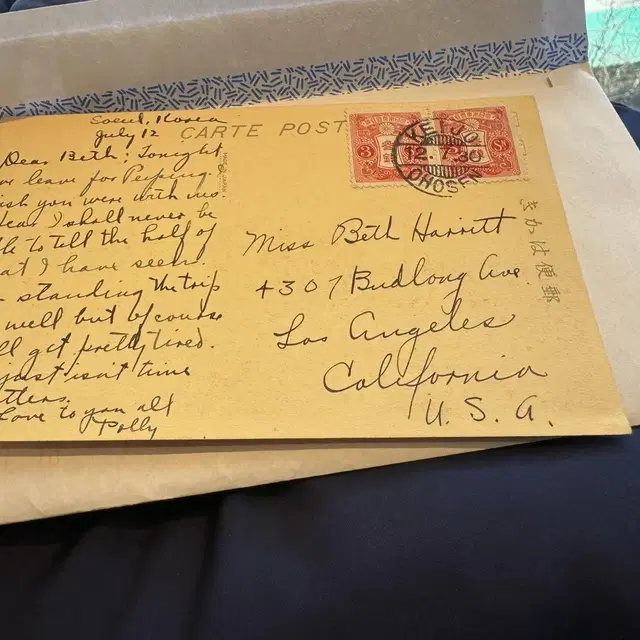 Seoul, Korea
July 12
CARTE POST
Dear Beth: Tonight
we leave for Peiping.
ish you were with me.
dear I shall never be
le to tell the half of
at I have seen
standing the trip
well but of course
ll get pretty tired.
just isn't time
tters.
Love to you all
Polly
KEIJO
12.7.30
CHOSEN
3
Miss Beth Harritt
4307 Budlong Ave.
Los Angeles
California
U.S.A.
きかは便郵